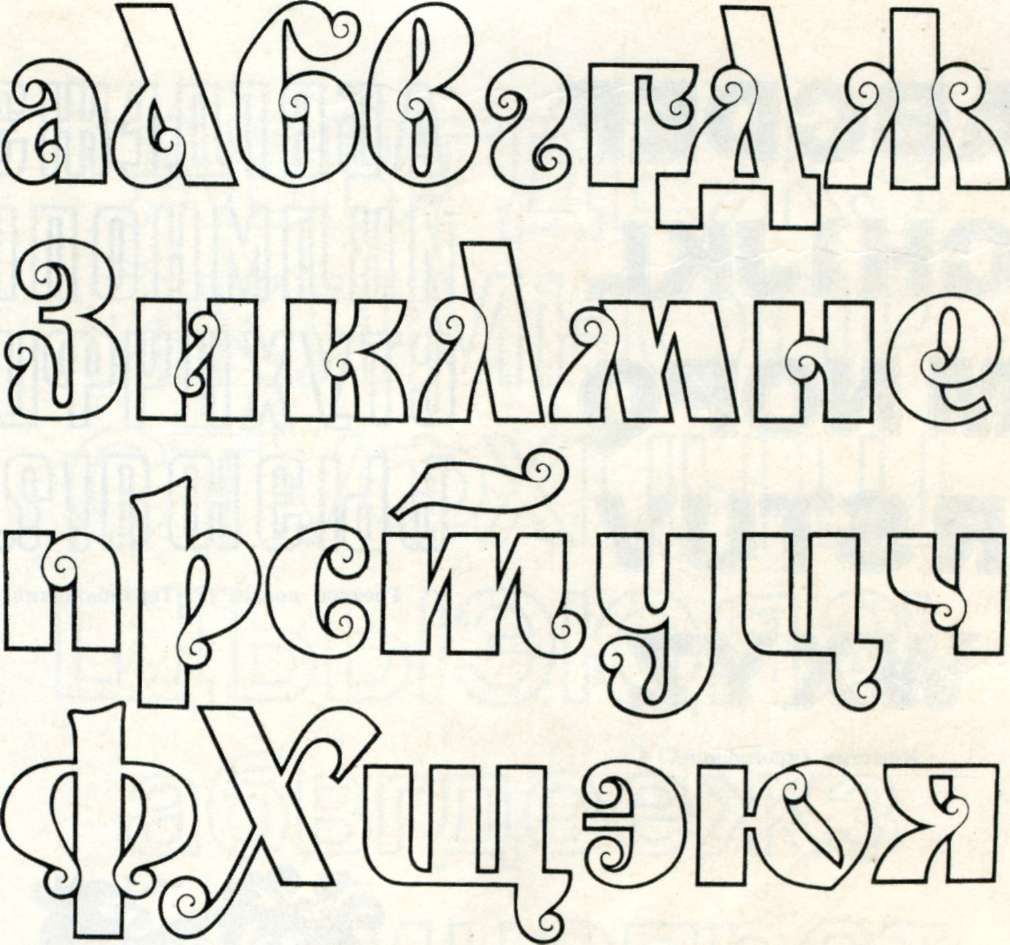 аАбвггДЖ
Зиклмне
прстуцч
ФХщэюя